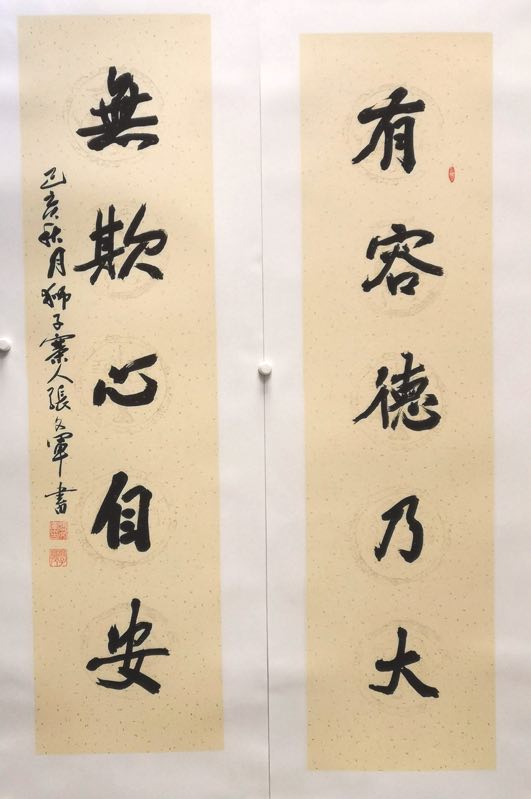 有容德乃大
無欺心自安
己亥秋月狮子寨人張文軍書